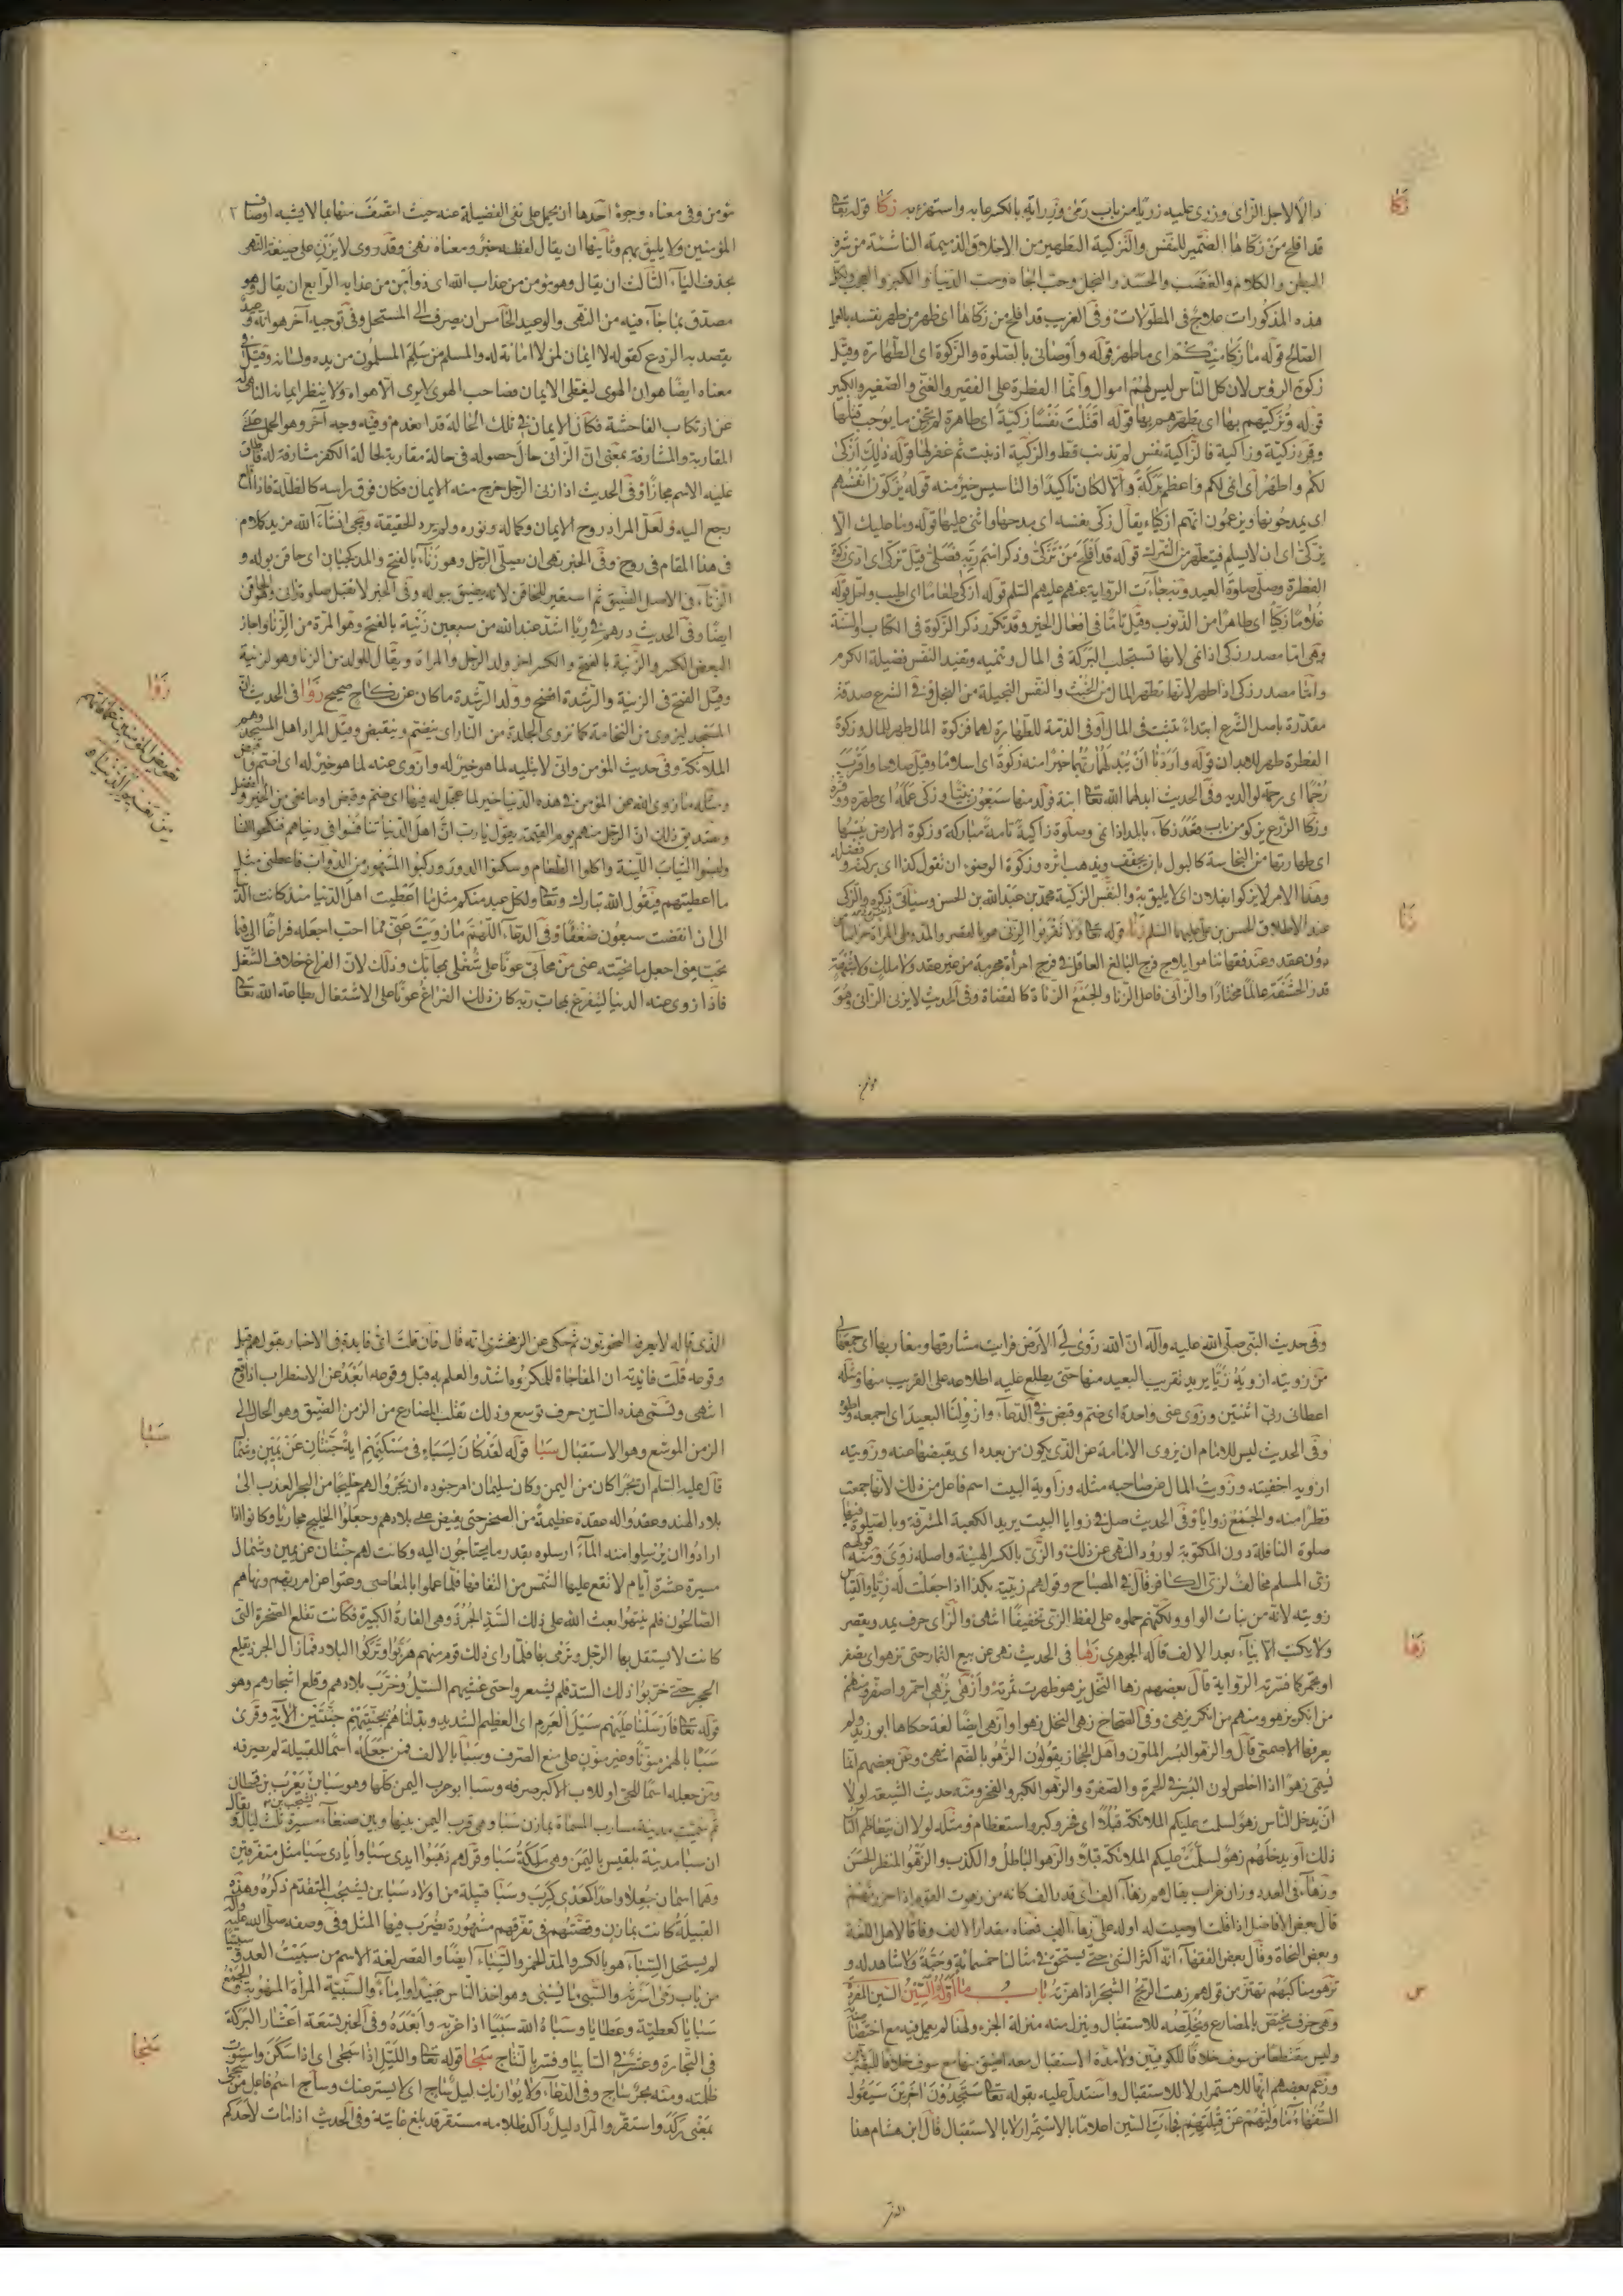 دالا لاجل الزاى وزرى عليه زريا من باب رمى وزراية بالكسر عابه واستهزء به زكا قوله تعا
قد افلح من زكاها الضمير للنفس والتزكية التطهير من الاخلاق الذميمة الناشئة من شره
البطن والكلام والغضب والحسد والبخل وحب الجاه وحب الدنيا والكبر والعجب ولكل
هذه المذكورات علاج فى المطولات وفى الغريب قد افلح من زكاها اى ظفر من طهر نفسه بالعمل
الصالح قوله ما زكا منكم اى ما طهر قوله واوصانى بالصلوة والزكوة اى الطهارة وقيل
زكوة الرؤس لان كل الناس ليس لهم اموال وانما الفطرة على الفقير والغنى والصغير والكبير
قوله وتزكيهم بها اى تطهرهم بها قوله اقتلت نفسا زكية اى طاهرة لم تجن ما يوجب قتلها
وقرء زكية وزاكية فالزاكية نفس لم تذنب قط والزكية اذنبت ثم غفر لها قوله ذلك ازكى
لكم واطهر اى انمى لكم واعظم بركة والا لكان تاكيدا والتاسيس خير منه قوله يزكون انفسهم
اى يمدحونها ويزعمون انهم ازكياء يقال زكى نفسه اى مدحها واثنى عليها قوله وما عليك الا
يزكى اى ان لا يسلم فيتطهر من الشرك قوله قد افلح من تزكى وذكر اسم ربه فصلى قيل تزكى اى ادى زكوة
الفطرة وصلى صلوة العيد وبه جاءت الرواية عنهم عليهم السلم قوله ازكى طعاما اى اطيب واحل قوله
غلاما زكيا اى طاهرا من الذنوب وقيل ناميا فى افعال الخير وقد تكرر ذكر الزكوة فى الكتاب والسنة
وهى اما مصدر زكى اذا نمى لانها تستجلب البركة فى المال وتنميه وتفيد النفس فضيلة الكرم
واما مصدر زكى اذا طهر لانها تطهر المال من الخبث والنفس البخيلة من البخل وفى الشرع صدقة
مقدرة باصل الشرع ابتداء تثبت فى المال او فى الذمة للطهارة لهما فزكوة المال طهر للمال وزكوة
الفطرة طهر للابدان قوله واردنا ان يبدلهما ربهما خيرا منه زكوة اى اسلاما وقيل صلاحا واقرب
رحما اى رحمة لوالديه وفى الحديث ابدلهما الله تعا ابنة فولد منها سبعون نبيا وزكى عمله اى طهره
وزكا الزرع يزكو من باب قعد زكاء بالمد اذا نمى وصلوة زاكية تامة مباركة وزكوة الارض يبسها
اى طهارتها من النجاسة كالبول بان يجفف ويذهب اثره وزكوة الوضوء ان تقول كذا اى بركته وفضله
وهذا الامر لا يزكو بفلان اى لا يليق به والنفس الزكية محمد بن عبد الله بن الحسن وسياتى ذكره والزكى
عند الاطلاق الحسن بن على عليهما السلم زنا قوله تعا ولا تقربوا الزنى هو بالقصر والمد وطى المراة حراما
دون عقد وعند فقهائنا هو ايلاج فرج البالغ العاقل فى فرج امراة محرمة من غير عقد ولا ملك ولا شبهة
قدر الحشفة عالما مختارا والزانى فاعل الزنا والجمع الزناة كالقضاة وفى الحديث لا يزنى الزانى وهو
مؤمن
زكا
زنا
مؤمن وفى معناه وجوه احدها ان يحمل على نفى الفضيلة عنه حيث اتصف منها بما لا يشبه اوصاف
المؤمنين ولا يليق بهم وثانيها ان يقال لفظه خبر ومعناه نهى وقد روى لا يزن على صيغة النهى
بحذف الياء الثالث ان يقال وهو مؤمن من عذاب الله اى ذو امن من عذابه الرابع ان يقال وهو
مصدق بما جاء فيه من النهى والوعيد الخامس ان يصرف الى المستحل وفى توجيه آخر هو انه وعيد
يقصد به الردع كقوله لا ايمان لمن لا امانة له والمسلم من سلم المسلمون من يده ولسانه وقيل فى
معناه ايضا هو ان الهوى ليغطى الايمان فصاحب الهوى لا يرى الا هواه ولا ينظر ايمانه الناهى له
عن ارتكاب الفاحشة فكان الايمان فى تلك الحالة قد انعدم وفيه وجه آخر وهو الحمل على
المقاربة والمشارفة بمعنى ان الزانى حال حصوله فى حالة مقاربة لحالة الكفر مشارفة له فاطلق
عليه الاسم مجازا وفى الحديث اذا زنى الرجل خرج منه الايمان فكان فوق راسه كالظلة فاذا اقلع
رجع اليه ولعل المراد روح الايمان وكماله ونوره ولم يرد الحقيقة ويجئ انشاء الله مزيد كلام
فى هذا المقام فى روح وفى الخبر نهى ان يصلى الرجل وهو زناء بالفتح والمد كجبان اى حاقن بوله و
الزناء فى الاصل الضيق ثم استعير للحاقن لانه يضيق ببوله وفى الخبر لا تقبل صلوة زانئ وهو الحاقن
ايضا وفى الحديث درهم فى ربا اشد عند الله من سبعين زنية بالفتح وهو المرة من الزنا واجاز
البعض الكسر والزنية بالفتح والكسر اخر ولد الرجل والمراة ويقال للولد من الزنا وهو لزنية
وقيل الفتح فى الزنية والرشدة افصح وولد الرشدة ما كان عن نكاح صحيح زوا فى الحديث ان
المسجد لينزوى من النخامة كما تزوى الجلدة من النار اى ينضم وينقبض وقيل المراد اهل المسجد وهم
الملائكة وفى حديث المؤمن وانى لا بتليه لما هو خير له وازوى عنه لما هو خير له اى اقبض
ومثله ما زوى الله عن المؤمن فى هذه الدنيا خير لما عجل له فيها اى ضم وقبض او ما نحى من الخير والفضل
وتصديق ذلك ان الرجل منهم يوم القيمة يقول يا رب ان اهل الدنيا تنافسوا فى دنياهم فنكحوا النساء
ولبسوا الثياب اللينة واكلوا الطعام وسكنوا الدور وركبوا المشهور من الدواب فاعطنى مثل
ما اعطيتهم فيقول الله تبارك وتعا ولكل عبد منكم مثل ما اعطيت اهل الدنيا منذ كانت الدنيا
الى ان انقضت سبعون ضعفا وفى الدعاء اللهم ما زويت عنى مما احب اجعله فراغا لى فيما
تحب يعنى اجعل ما نحيته عنى من محابى عونا على شغلى بمحابك وذلك لان الفراغ خلاف الشغل
فاذا زوى عنه الدنيا ليتفرغ بمحاب ربه كان ذلك الفراغ عونا على الاشتغال بطاعة الله تعا
زوا
وفى حديث النبى صلى الله عليه وآله ان الله زوى لى الارض فرايت مشارقها ومغاربها اى جمعها لى
من زويته ازويه زيا يريد تقريب البعيد منها حتى يطلع عليه اطلاعه على القريب منها ومثله
اعطانى ربى اثنتين وزوى عنى واحدة اى ضم وقبض وفى الدعاء وازو لنا البعيد اى اجمعه واطوه
وفى الحديث ليس للامام ان يزوى الامامة عن الذى يكون من بعده اى يقبضها عنه وزويته
ازويه اخفيته وزويت المال عن صاحبه مثله وزاوية البيت اسم فاعل من ذلك لانها جمعت
قطرا منه والجمع زوايا وفى الحديث صل فى زوايا البيت يريد الكعبة المشرفة وبالصلوة فيها
صلوة النافلة دون المكتوبة لورود النهى عن ذلك والزى بالكسر الهيئة واصله زوى ومنه قولهم
زى المسلم مخالف لزى الكافر قال فى المصباح وقولهم زييته بكذا اذا جعلت له زيا والقياس
زويته لانه من بنات الواو ولكنهم حملوه على لفظ الزى تخفيفا انتهى والزاى حرف يمد ويقصر
ولا يكتب الا بياء بعد الالف قاله الجوهرى زها فى الحديث نهى عن بيع الثمار حتى تزهو اى تصفر
او تحمر كما فسرته الرواية قال بعضهم زها النخل يزهو ظهرت ثمرته وازهى يزهى احمر واصفر ومنهم
من انكر يزهو ومنهم من انكر يزهى وفى الصحاح زهى النخل زهوا وازهى ايضا لغة حكاها ابو زيد ولم
يعرفها الاصمعى قال والزهو البسر الملون واهل الحجاز يقولون الزهو بالضم انتهى وعن بعضهم انما
يسمى زهوا اذا خلص لون البسر فى الحمرة والصفرة والزهو الكبر والفخر ومنه حديث الشيعة لولا
ان يدخل الناس زهو لسلمت عليكم الملائكة قبلا اى فخر وكبر واستعظام ومثله لولا ان يتعاظم الناس
ذلك او يدخلهم زهو لسلمت عليكم الملائكة قبلا والزهو الباطل والكذب والزهو المنظر الحسن
وزهاء فى العدد وزان غراب يقال هم زهاء الف اى قدر الف كانه من زهوت القوم اذا حزرتهم
قال بعض الافاضل اذا قلت اوصيت له او له على زهاء الف فمعناه مقدار الالف وفاقا لاهل اللغة
وبعض النحاة وقال بعض الفقهاء انه اكثر الشئ حتى يستحق فى مثالنا خمسمائة وحبة ولا شاهد له و
تزهو مناكبهم تهتز من قولهم زهت الريح الشجر اذا هزته باب ما اوله السين السين المفردة
وهى حرف يختص بالمضارع ويخلصه للاستقبال وينزل منه منزلة الجزء ولهذا لم يعمل فيه مع اختصاصه به
وليس مقتطعا من سوف خلافا للكوفيين ولا مدة الاستقبال معه اضيق منها مع سوف خلافا للبصريين
وزعم بعضهم انها للاستمرار لا للاستقبال واستدل عليه بقوله تعا ستجدون آخرين سيقول
السفهاء ما وليهم عن قبلتهم فجاءت السين اعلاما بالاستمرار لا بالاستقبال قال ابن هشام هذا
الذى
زها
س
الذى قاله لا يعرفه النحويون ثم حكى عن الزمخشرى انه قال فان قلت اى فايدة فى الاخبار بقولهم قبل
وقوعه قلت فائدته ان المفاجاة للمكروه اشد والعلم به قبل وقوعه ابعد عن الاضطراب اذا وقع
انتهى وتسمى هذه السين حرف توسع وذلك تقلب المضارع من الزمن الضيق وهو الحال الى
الزمن الموسع وهو الاستقبال سبا قوله لقد كان لسباء فى مسكنهم اية جنتان عن يمين وشمال
قال عليه السلم ان بحرا كان من اليمن وكان سليمان امر جنوده ان يجروا لهم خليجا من البحر العذب الى
بلاد الهند وعقدوا له عقدة عظيمة من الصخر حتى يفيض على بلادهم وجعلوا الخليج مجاريا وكانوا اذا
ارادوا ان يرسلوا منه الماء ارسلوه بقدر ما يحتاجون اليه وكانت لهم جنتان عن يمين وشمال
مسيرة عشرة ايام لا تقع عليها الشمس من التفافها فلما عملوا بالمعاصى وعتوا عن امر ربهم ونهاهم
الصالحون فلم ينتهوا بعث الله على ذلك السد الجرذ وهى الفارة الكبيرة فكانت تقلع الصخرة التى
كانت لا يستقل بها الرجل وترمى بها فلما راى ذلك قوم منهم هربوا وتركوا البلاد فما زال الجرذ يقلع
الحجر حتى خربوا ذلك السد فلم يشعروا حتى غشيهم السيل وخرب بلادهم وقلع اشجارهم وهو
قوله تعا فارسلنا عليهم سيل العرم اى العظيم الشديد وبدلناهم بجنتيهم جنتين الاية وقرئ
سبا بالهمز منونا وغير منون على منع الصرف وسبا بالالف فمن جعله اسما للقبيلة لم يصرفه
ومن جعله اسما للحى او للاب الاكبر صرفه وسبا ابو عرب اليمن كلها وهو سبا بن يشجب بن يعرب بن قحطان
ثم سميت مدينة مسارب المسماة بمازن سبا وهى قرب اليمن بينها وبين صنعاء مسيرة ثلث ليال ويقال
ان سبا مدينة بلقيس باليمن وهى ملكة سبا وقولهم ذهبوا ايدى سبا وايادى سبا مثل متفرقين
وهما اسمان جعلا واحدا كمعدى كرب وسبا قبيلة من اولاد سبا بن يشجب المتقدم ذكره وهذه
القبيلة كانت بمازن وقصتهم فى تفرقهم مشهورة يضرب فيها المثل وفى وصفه صلى الله عليه وآله
لم يستحل السباء هو بالكسر والمد للخمر والسباء ايضا والقصر لغة الاسم من سبيت العدو سبيا
من باب رمى اسرته والسبى ما يسبى وهو اخذ الناس عبيدا واماء والسبية المراة المنهوبة والجمع
سبايا كعطية وعطايا وسباه الله سبيا اذا غربه وابعده وفى الخبر تسعة اعشار البركة
فى التجارة وعشر فى السابيا وفسر بالنتاج سجا قوله تعا والليل اذا سجى اى اذا سكن واستوت
ظلمته ومنه بحر ساج وفى الدعاء ولا يوارى منك ليل ساج اى لا يستر عنك وساج اسم فاعل من سجى
بمعنى ركد واستقر والمراد ليل راكد ظلامه مستقر قد بلغ غايته وفى الحديث اذا مات لاحدكم
سبا
مثل
سجا